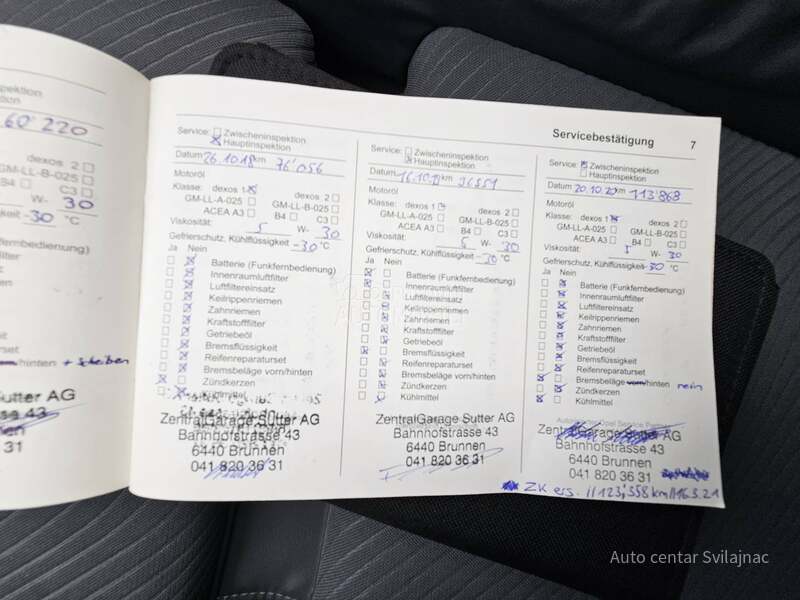 60'220
dexos 2
GM-LL-B-025
B4 C3
W- 30
-30 °C
hinten + scheiben
Sutter AG
43
31
Servicebestätigung 7
Service: Zwischeninspektion
Hauptinspektion
Datum 26.10.18 km 76'056
Motoröl
Klasse: dexos 1 dexos 2
GM-LL-A-025 GM-LL-B-025
ACEA A3 B4 C3
Viskosität: 5 W- 30
Gefrierschutz, Kühlflüssigkeit -30 °C
Ja Nein
Batterie (Funkfernbedienung)
Innenraumluftfilter
Luftfiltereinsatz
Keilrippenriemen
Zahnriemen
Kraftstofffilter
Getriebeöl
Bremsflüssigkeit
Reifenreparaturset
Bremsbeläge vorn/hinten
Zündkerzen
ZentralGarage Sutter AG
Bahnhofstrasse 43
6440 Brunnen
041 820 36 31
Service: Zwischeninspektion
Hauptinspektion
Datum 16.10.19 km 96851
Motoröl
Klasse: dexos 1 dexos 2
GM-LL-A-025 GM-LL-B-025
ACEA A3 B4 C3
Viskosität: 5 W- 30
Gefrierschutz, Kühlflüssigkeit -30 °C
Ja Nein
Batterie (Funkfernbedienung)
Innenraumluftfilter
Luftfiltereinsatz
Keilrippenriemen
Zahnriemen
Kraftstofffilter
Getriebeöl
Bremsflüssigkeit
Reifenreparaturset
Bremsbeläge vorn/hinten
Zündkerzen
Kühlmittel
ZentralGarage Sutter AG
Bahnhofstrasse 43
6440 Brunnen
041 820 36 31
Service: Zwischeninspektion
Hauptinspektion
Datum 20.10.20 km 113'868
Motoröl
Klasse: dexos 1 dexos 2
GM-LL-A-025 GM-LL-B-025
ACEA A3 B4 C3
Viskosität: 5 W- 30
Gefrierschutz, Kühlflüssigkeit -30 °C
Ja Nein
Batterie (Funkfernbedienung)
Innenraumluftfilter
Luftfiltereinsatz
Keilrippenriemen
Zahnriemen
Kraftstofffilter
Getriebeöl
Bremsflüssigkeit
Reifenreparaturset
Bremsbeläge vorn/hinten nein
Zündkerzen
Kühlmittel
ZentralGarage Sutter AG
Bahnhofstrasse 43
6440 Brunnen
041 820 36 31
ZK ers. // 123'358 km // 16.3.21
Auto centar Svilajnac